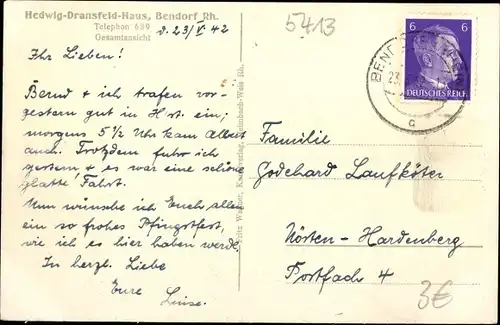 Hedwig-Dransfeld-Haus, Bendorf Rh.
Telephon 689
Gesamtansicht
d. 23/V. 42
Ihr Lieben!
Bernd + ich trafen vor-
gestern gut in H. st. ein;
morgens 5 1/2 Uhr kam Albert
auch. Trotzdem fuhr ich
gestern + es war eine schöne
glatte Fahrt.
Nun wünsche ich Euch allen
ein so frohes Pfingstfest,
wie ich es hier haben werde.
In herzl. Liebe
Eure
Luise.
5413
6 6
DEUTSCHES REICH
BEND
23.
c
Familie
Godehard Laufköter
Nörten-Hardenberg
Postfach 4
3€